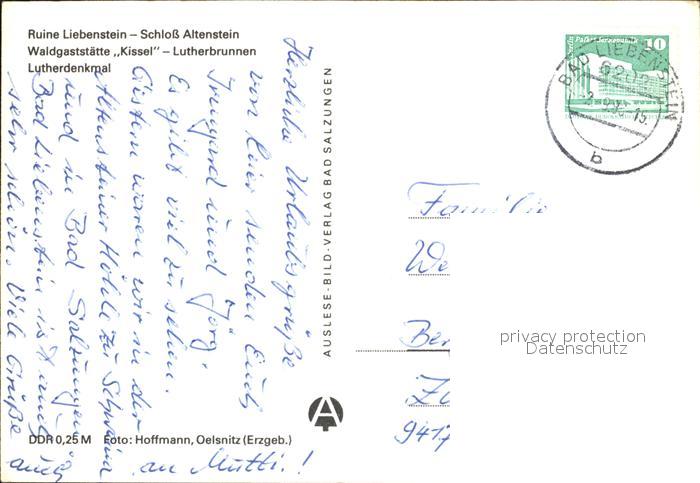 Ruine Liebenstein – Schloß Altenstein
Waldgaststätte „Kissel" – Lutherbrunnen
Lutherdenkmal
Herzliche Urlaubsgrüße
von hier senden Euch
Irmgard und Jörg.
Es gibt viel zu sehen.
Gestern waren wir in der
Altensteiner Höhle zu Schweina
und in Bad Salzungen
Bad Liebenstein ist auch
sehr schön. Viele Grüße
auch an Mutti.!
DDR 0,25 M Foto: Hoffmann, Oelsnitz (Erzgeb.)
AUSLESE-BILD-VERLAG BAD SALZUNGEN
10
BAD LIEBENSTEIN
6208
b
Familie
We
Ber
941
privacy protection
Datenschutz